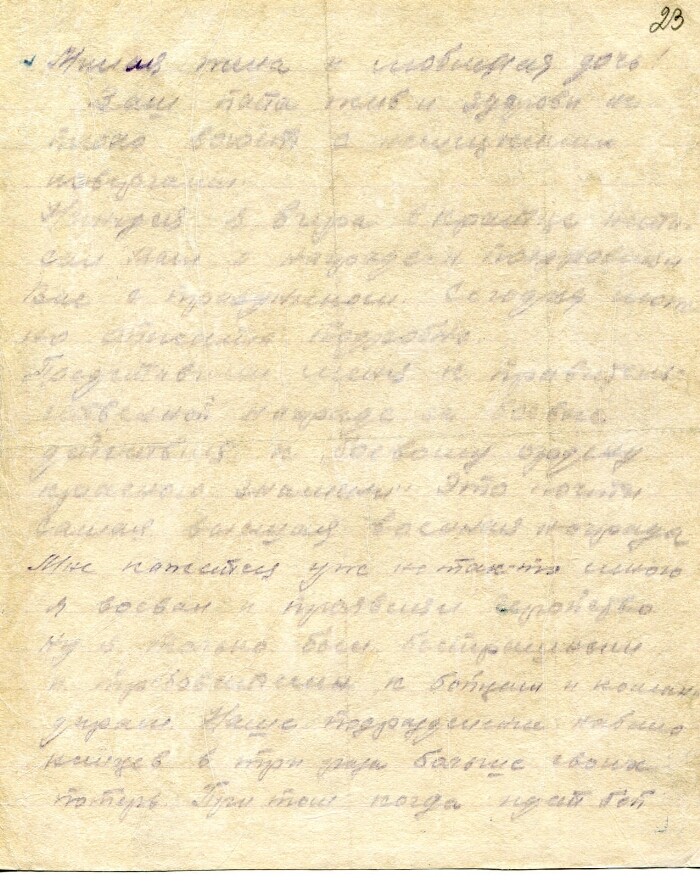 23
Милая жена и любимая дочь!
Ваш папа жив и здоров и
плохо воюет с немецкими
Вчера я вчера вкратце напи-
сал Вам о награде и поздравил
Вас с праздником. Сегодня
но описать подробно.
Представили меня к правитель-
ственной награде за боевые
действия к боевому ордену
красного знамени. Это почти
самая высшая военная награда
Мне кажется уж не так то много
я воевал и проявил геройство
ну я только был бесстрашным
и требовательным к бойцам и коман-
дирам. Наше подразделение набило
немцев в три раза больше своих
потерь. При том когда идет бой